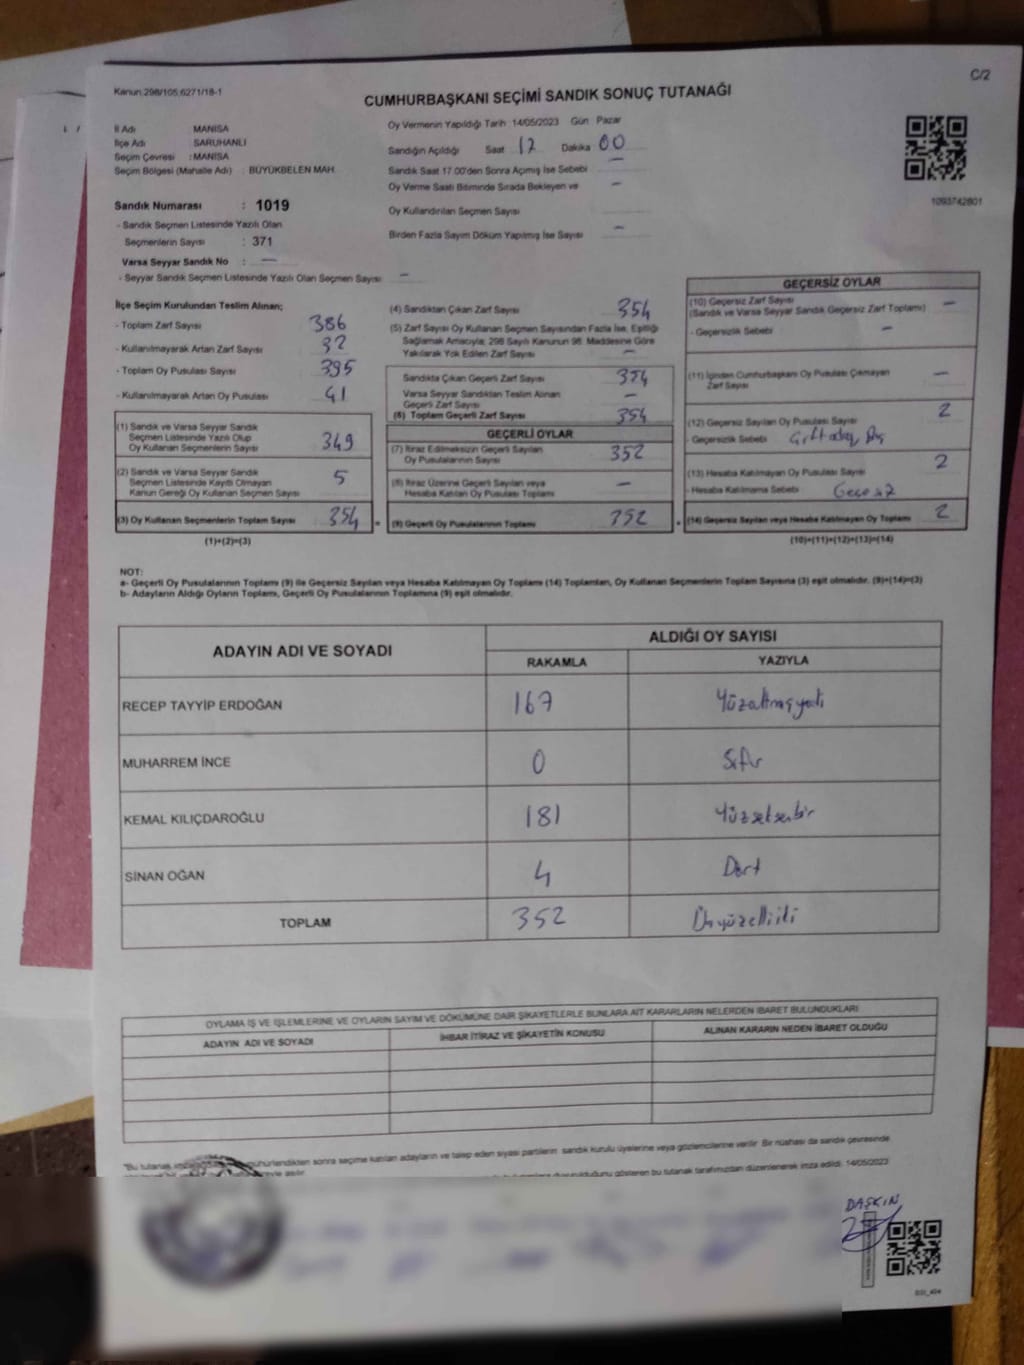 C/2
Kanun:298/105;6271/18-1
CUMHURBAŞKANI SEÇİMİ SANDIK SONUÇ TUTANAĞI
İl Adı MANİSA
İlçe Adı SARUHANLI
Seçim Çevresi : MANİSA
Seçim Bölgesi (Mahalle Adı) : BÜYÜKBELEN MAH.
Sandık Numarası : 1019
- Sandık Seçmen Listesinde Yazılı Olan
Seçmenlerin Sayısı : 371
Varsa Seyyar Sandık No : —
- Seyyar Sandık Seçmen Listesinde Yazılı Olan Seçmen Sayısı —
Oy Vermenin Yapıldığı Tarih :14/05/2023 Gün Pazar
Sandığın Açıldığı Saat 17 Dakika 00
Sandık Saat 17.00'den Sonra Açmış İse Sebebi —
Oy Verme Saati Bitiminde Sırada Bekleyen ve —
Oy Kullandırılan Seçmen Sayısı
Birden Fazla Sayım Döküm Yapılmış İse Sayısı —
1093742801
İlçe Seçim Kurulundan Teslim Alınan;
- Toplam Zarf Sayısı 386
- Kullanılmayarak Artan Zarf Sayısı 32
- Toplam Oy Pusulası Sayısı 395
- Kullanılmayarak Artan Oy Pusulası 41
(1) Sandık ve Varsa Seyyar Sandık
Seçmen Listesinde Yazılı Olup
Oy Kullanan Seçmenlerin Sayısı 349
(2) Sandık ve Varsa Seyyar Sandık
Seçmen Listesinde Kayıtlı Olmayan
Kanun Gereği Oy Kullanan Seçmen Sayısı 5
(3) Oy Kullanan Seçmenlerin Toplam Sayısı 354 =
(1)+(2)=(3)
(4) Sandıktan Çıkan Zarf Sayısı 354
(5) Zarf Sayısı Oy Kullanan Seçmen Sayısından Fazla İse, Eşitliği
Sağlamak Amacıyla; 298 Sayılı Kanunun 98. Maddesine Göre
Yakılarak Yok Edilen Zarf Sayısı —
Sandıkta Çıkan Geçerli Zarf Sayısı 354
Varsa Seyyar Sandıktan Teslim Alınan
Geçerli Zarf Sayısı —
(6) Toplam Geçerli Zarf Sayısı 354
GEÇERLİ OYLAR
(7) İtiraz Edilmeksizin Geçerli Sayılan
Oy Pusulalarının Sayısı 352
(8) İtiraz Üzerine Geçerli Sayılan veya
Hesaba Katılan Oy Pusulası Toplamı —
(9) Geçerli Oy Pusulalarının Toplamı 352 +
GEÇERSİZ OYLAR
(10) Geçersiz Zarf Sayısı
(Sandık ve Varsa Seyyar Sandık Geçersiz Zarf Toplamı) —
- Geçersizlik Sebebi —
(11) İçinden Cumhurbaşkanı Oy Pusulası Çıkmayan
Zarf Sayısı —
(12) Geçersiz Sayılan Oy Pusulası Sayısı 2
- Geçersizlik Sebebi
(13) Hesaba Katılmayan Oy Pusulası Sayısı 2
- Hesaba Katılmama Sebebi Geçersiz
(14) Geçersiz Sayılan veya Hesaba Katılmayan Oy Toplamı 2
(10)+(11)+(12)+(13)=(14)
NOT:
a- Geçerli Oy Pusulalarının Toplamı (9) ile Geçersiz Sayılan veya Hesaba Katılmayan Oy Toplamı (14) Toplamları, Oy Kullanan Seçmenlerin Toplam Sayısına (3) eşit olmalıdır. (9)+(14)=(3)
b- Adayların Aldığı Oyların Toplamı, Geçerli Oy Pusulalarının Toplamına (9) eşit olmalıdır.
ADAYIN ADI VE SOYADI ALDIĞI OY SAYISI
RAKAMLA YAZIYLA
RECEP TAYYİP ERDOĞAN 167 Yüzaltmışyedi
MUHARREM İNCE 0 Sıfır
KEMAL KILIÇDAROĞLU 181 Yüzseksenbir
SİNAN OĞAN 4 Dört
TOPLAM 352 Üçyüzelliiki
OYLAMA İŞ VE İŞLEMLERİNE VE OYLARIN SAYIM VE DÖKÜMÜNE DAİR ŞİKAYETLERLE BUNLARA AİT KARARLARIN NELERDEN İBARET BULUNDUKLARI
ADAYIN ADI VE SOYADI İHBAR İTİRAZ VE ŞİKAYETİN KONUSU ALINAN KARARIN NEDEN İBARET OLDUĞU
"Bu tutanak mühürlendikten sonra seçime katılan adayların ve talep eden siyasi partilerin sandık kurulu üyelerine veya gözlemcilerine verilir. Bir nüshası da sandık çevresinde
duyurulduğunu gösteren bu tutanak tarafımızdan düzenlenerek imza edildi. 14/05/2023
DAŞKIN